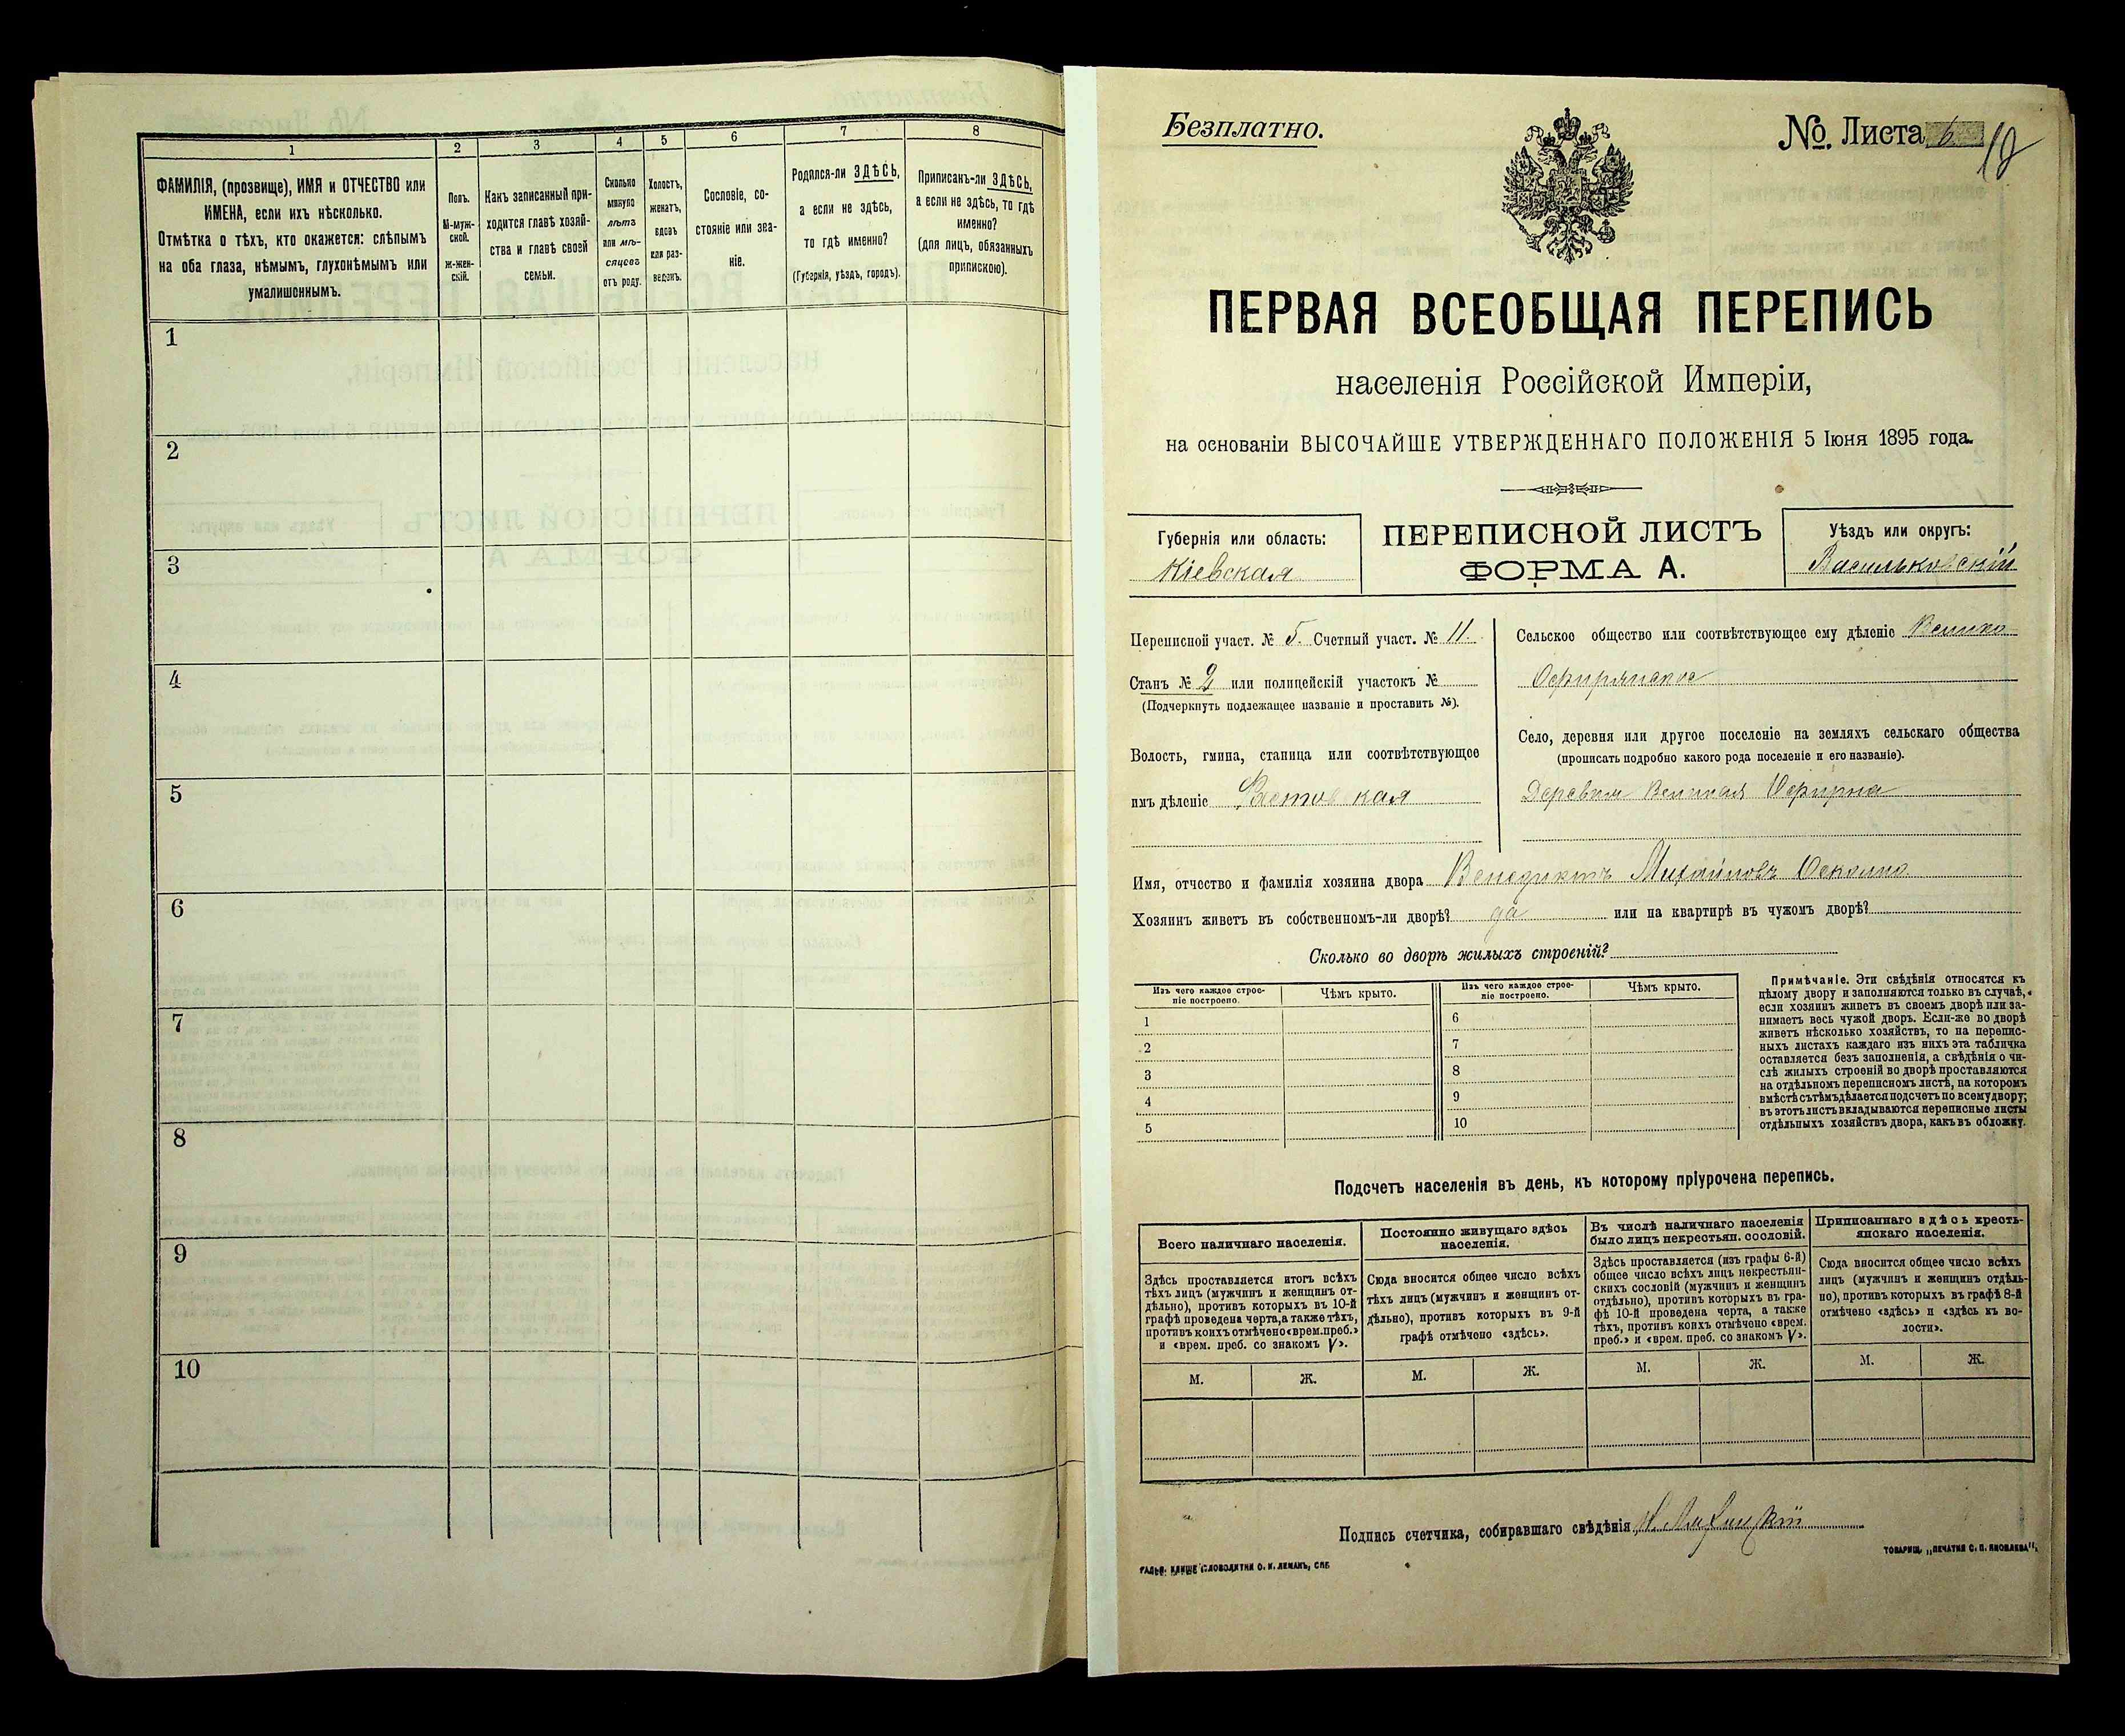 1
2
3
4
5
6
7
8
ФАМИЛІЯ, (прозвище), ИМЯ и ОТЧЕСТВО или
ИМЕНА, если ихъ нѣсколько.
Отмѣтка о тѣхъ, кто окажется: слѣпымъ
на оба глаза, нѣмымъ, глухонѣмымъ или
умалишоннымъ.
Полъ.
М-муж-
ской.
Ж-жен-
скій.
Какъ записанный при-
ходится главѣ хозяй-
ства и главѣ своей
семьи.
Сколько
минуло
лѣтъ
или мѣ-
сяцевъ
отъ роду.
Холостъ,
женатъ,
вдовъ
или раз-
веденъ.
Сословіе, со-
стояніе или зва-
ніе.
Родился-ли ЗДѢСЬ,
а если не здѣсь,
то гдѣ именно?
(Губернія, уѣздъ, городъ).
Приписанъ-ли ЗДѢСЬ,
а если не здѣсь, то гдѣ
именно?
(для лицъ, обязанныхъ
припискою).
1
2
3
4
5
6
7
8
9
10
Безплатно.
№. Листа 6.
ПЕРВАЯ ВСЕОБЩАЯ ПЕРЕПИСЬ
населенія Россійской Имперіи,
на основаніи ВЫСОЧАЙШЕ УТВЕРЖДЕННАГО ПОЛОЖЕНІЯ 5 Іюня 1895 года.
Губернія или область:
Кіевская
ПЕРЕПИСНОЙ ЛИСТЪ
ФОРМА А.
Уѣздъ или округъ:
Васильковскій
Переписной участ. № 5. Счетный участ. № 11.
Станъ № 2 или полицейскій участокъ №
(Подчеркнуть подлежащее названіе и проставить №).
Волость, гмина, станица или соотвѣтствующее
имъ дѣленіе Фастовская
Сельское общество или соотвѣтствующее ему дѣленіе Велико
Офирянское
Село, деревня или другое поселеніе на земляхъ сельскаго общества
(прописать подробно какого рода поселеніе и его названіе).
Деревня Великая Офирна
Имя, отчество и фамилія хозяина двора Венедиктъ Михайловъ Осколко
Хозяинъ живетъ въ собственномъ-ли дворѣ? да или на квартирѣ въ чужомъ дворѣ?
Сколько во дворѣ жилыхъ строеній?
Изъ чего каждое строе-
ніе построено.
Чѣмъ крыто.
Изъ чего каждое строе-
ніе построено.
Чѣмъ крыто.
1
2
3
4
5
6
7
8
9
10
Примѣчаніе. Эти свѣдѣнія относятся къ
цѣлому двору и заполняются только въ случаѣ,
если хозяинъ живетъ въ своемъ дворѣ или за-
нимаетъ весь чужой дворъ. Если-же во дворѣ
живетъ нѣсколько хозяйствъ, то на перепис-
ныхъ листахъ каждаго изъ нихъ эта табличка
оставляется безъ заполненія, а свѣдѣнія о чи-
слѣ жилыхъ строеній во дворѣ проставляются
на отдѣльномъ переписномъ листѣ, на которомъ
вмѣстѣ съ тѣмъ дѣлается подсчетъ по всему двору;
въ этотъ листъ вкладываются переписные листы
отдѣльныхъ хозяйствъ двора, какъ въ обложку.
Подсчетъ населенія въ день, къ которому пріурочена перепись.
Всего наличнаго населенія.
Постоянно живущаго здѣсь
населенія.
Въ числѣ наличнаго населенія
было лицъ некрестьян. сословій.
Приписаннаго здѣсь кресть-
янскаго населенія.
Здѣсь проставляется итогъ всѣхъ
тѣхъ лицъ (мужчинъ и женщинъ от-
дѣльно), противъ которыхъ въ 10-й
графѣ проведена черта, а также тѣхъ,
противъ коихъ отмѣчено «врем. преб.»
и «врем. преб. со знакомъ V».
Сюда вносится общее число всѣхъ
тѣхъ лицъ (мужчинъ и женщинъ от-
дѣльно), противъ которыхъ въ 9-й
графѣ отмѣчено «здѣсь».
Здѣсь проставляется (изъ графы 6-й)
общее число всѣхъ лицъ некрестьян-
скихъ сословій (мужчинъ и женщинъ
отдѣльно), противъ которыхъ въ гра-
фѣ 10-й проведена черта, а также
тѣхъ, противъ коихъ отмѣчено «врем.
преб.» и «врем. преб. со знакомъ V».
Сюда вносится общее число всѣхъ
лицъ (мужчинъ и женщинъ отдѣль-
но), противъ которыхъ въ графѣ 8-й
отмѣчено «здѣсь» и «здѣсь къ во-
лости».
М.
Ж.
М.
Ж.
М.
Ж.
М.
Ж.
Подпись счетчика, собиравшаго свѣдѣнія
ГАЛЬВ. КЛИШЕ СЛОВОЛИТНИ О. И. ЛЕМАНЪ, СПБ.
ТОВАРИЩ. „ПЕЧАТНЯ С. П. ЯКОВЛЕВА".